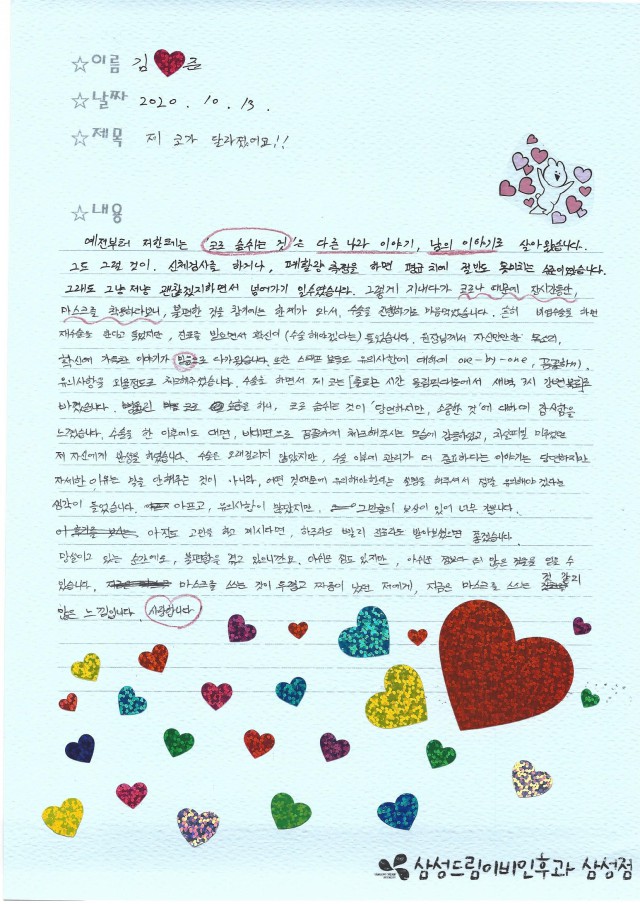 ☆이름 김 준
☆날짜 2020. 10. 13.
☆제목 제 코가 달라졌어요!!
☆내용
예전부터 저한테는 '코로 숨쉬는 것'은 다른 나라 이야기, 남의 이야기로 살아왔습니다.
그도 그럴 것이. 신체검사를 하거나, 폐활량 측정을 하면 평균치에 절반도 못미치는 수준이었습니다.
그래도 그냥저냥 괜찮겠지하면서 넘어가기 일수였습니다. 그렇게 지내다가 코로나 때문에 장시간동안,
마스크를 착용하다보니, 불편한 것을 참게에는 한계가 와서, 수술을 진행하기로 마음먹었습니다. 흔히 비염수술로 하면
재수술을 한다고 들었지만, 진료를 받으면서 확신이 (수술 해야겠다는) 들었습니다. 원장님께서 자신만만한 목소리,
확신에 가득찬 이야기가 믿음으로 다가왔습니다. 또한 스태프 분들도 유의사항에 대하여 one-by-one, 꼼꼼하게.
유의사항을 되물을정도로 체크해주셨습니다. 수술을 하면서 제 코는
바뀌었습니다. 수술을 하니, 코로 숨쉬는 것이 "당연하지만, 소중한 것"에 대하여 감사함을
느꼈습니다. 수술을 한 이후에도 대면, 비대면으로 꼼꼼하게 체크해주시는 모습에 감동하였고, 차일피일 미루었던
저 자신에게 반성을 하였습니다. 수술은 오래걸리지 않았지만, 수술 이후에 관리가 더 중요하다는 이야기는 당연하지만
자세한 이유는 말을 안해주는 것이 아니라, 어떤 것때문에 유의해야한다는 설명을 해주셔서 정말 유의해야 겠다는
생각이 들었습니다. 아프고, 유의사항이 많지만, 그만큼의 보상이 있어 너무 기쁩니다.
아직도 고민을 하고 계시다면, 하루라도 빨리 진료라도 받아보셨으면 좋겠습니다.
망설이고 있는 순간에도, 불편함을 겪고 있으니까요. 아쉬운 점도 있지만, 아쉬운 점보다 더 많은 것들을 얻을 수
있습니다. 마스크를 쓰는 것이 짜증이 났던 저에게, 지금은 마스크를 쓰는 것 같지
않은 느낌입니다. 사랑합니다
삼성드림이비인후과 삼성점